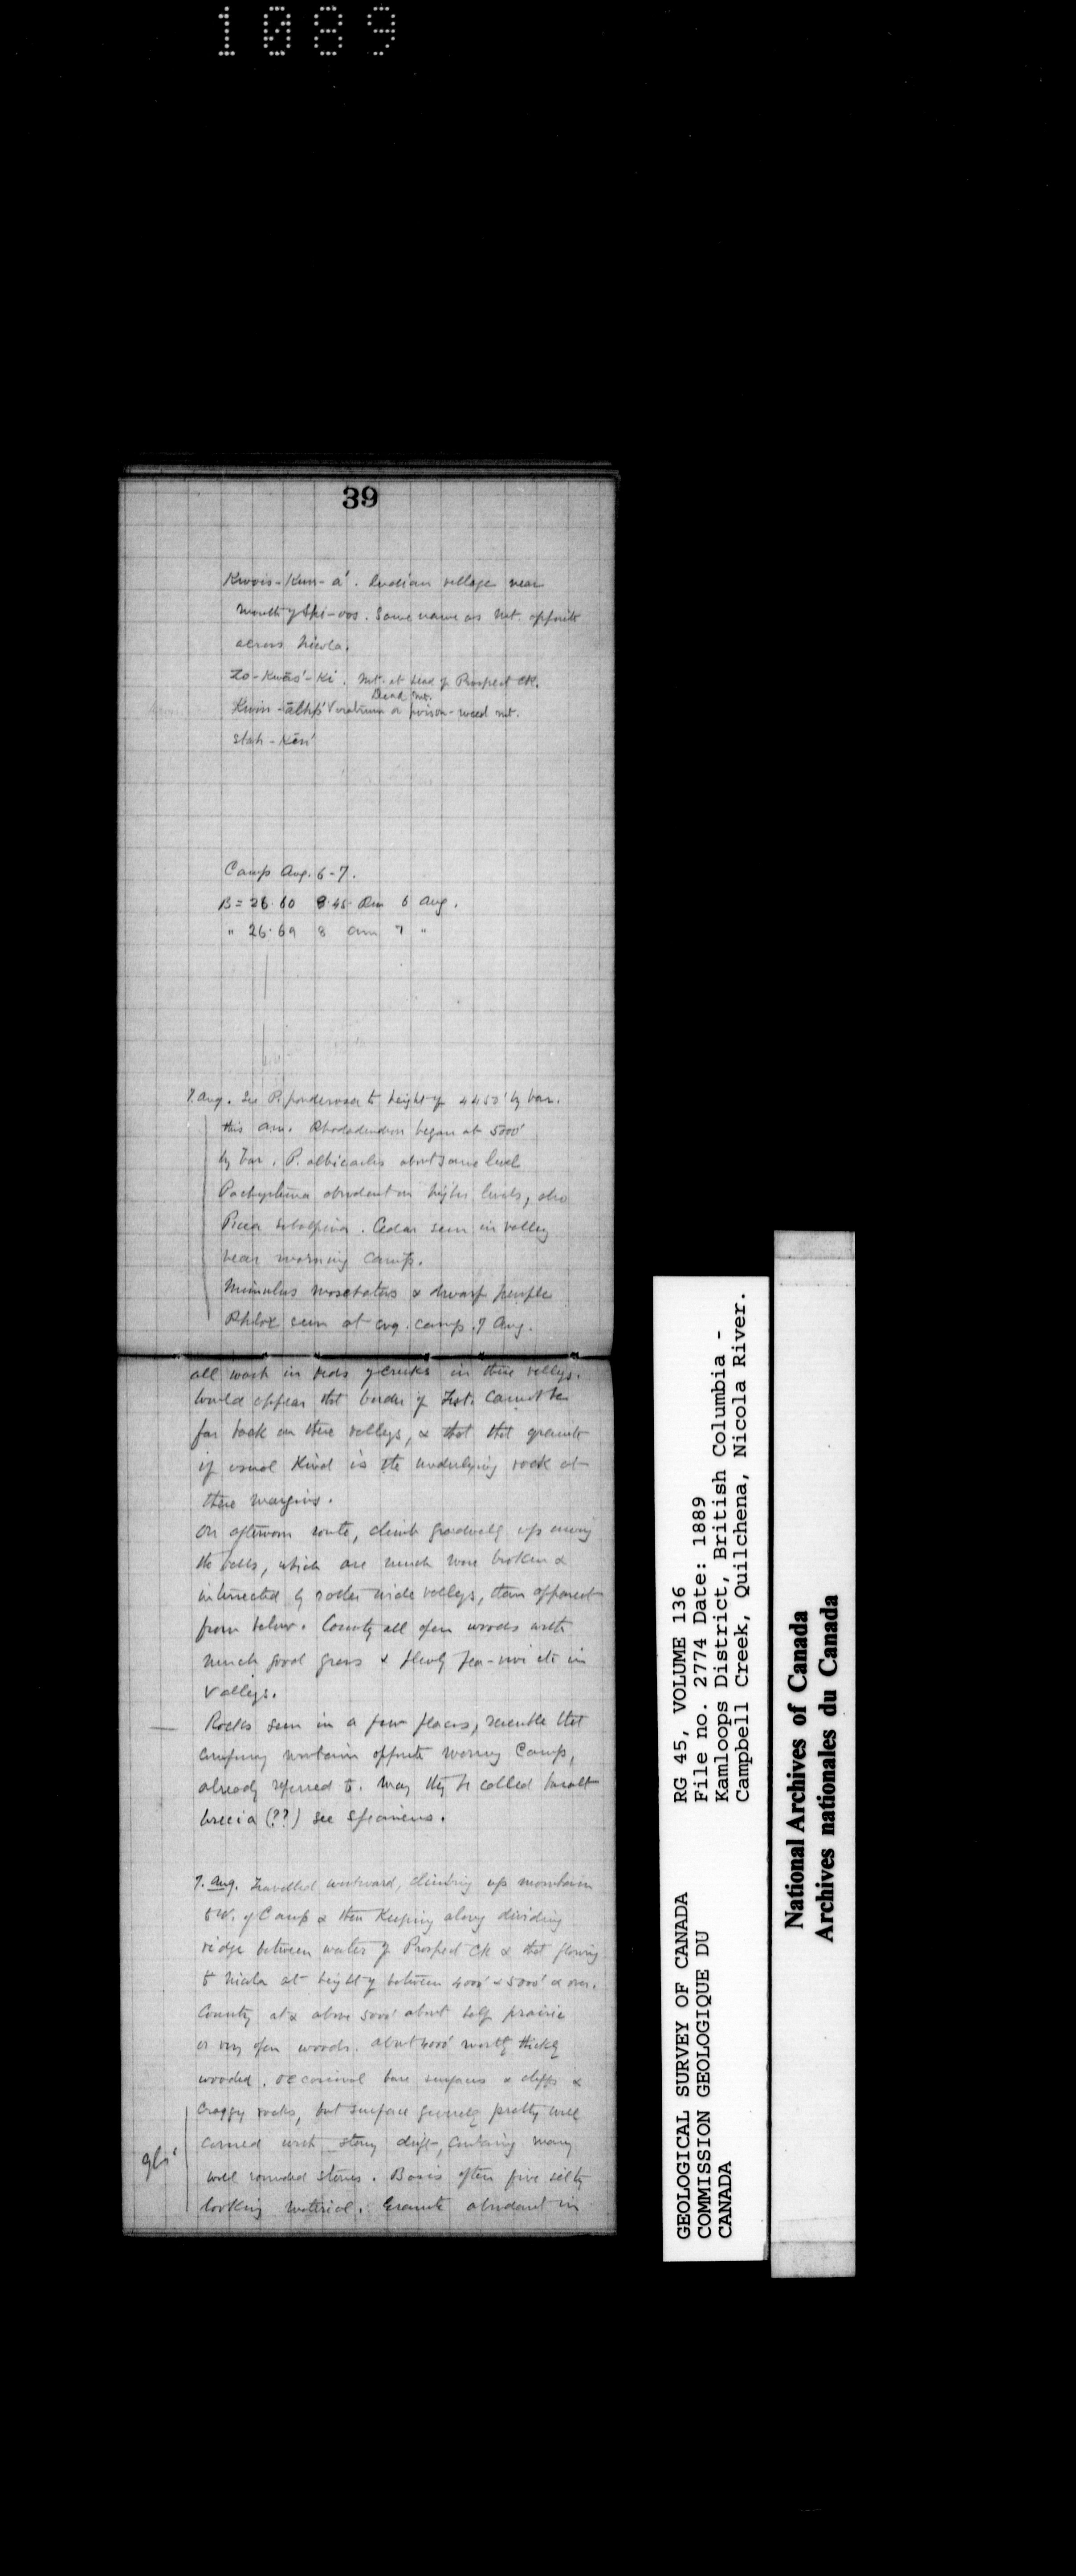 1089
39
Kwois-Kun-a'. Indian village near
mouth of Spi-oos. Same name as mt. opposite
across Nicola.
Zo-kwas'-ki. Mt. at head of Prospect Ck.
Dead mt.
Veratrum or poison-weed mt.
Stah-Ken'
Camp Aug. 6-7.
B = 26.60 8.45 6 Aug.
" 26.69 8 am 7 "
7. Aug. See P. ponderosa to height of 4450' by bar.
this a.m. Rhododendron began at 5000'
by bar. P. albicaulis about same level
Pachystima abundant on higher levels, also
Picea subalpina. Cedar seen in valley
near morning camp.
Mimulus moschatus & dwarf purple
Phlox seen at evg. camp. 7 Aug.
all wash in beds of creeks in these valleys.
Would appear that border of Tert. cannot be
far back on these valleys, & that that granite
of usual kind is the underlying rock at
these margins.
On afternoon route, climb gradually up among
the hills, which are much more broken &
intersected by rather wide valleys, than apparent
from below. Country all open woods with
much good grass & plenty pea-vine etc in
valleys.
Rocks seen in a few places, resemble that
composing mountain opposite morning camp,
already referred to. May they be called basalt
breccia (??) see specimens.
7. Aug. Travelled westward, climbing up mountain
to W. of Camp & then keeping along dividing
ridge between water of Prospect Ck & that flowing
to Nicola at height of between 4000' & 5000' & over.
Country at & above 5000' about half prairie
or very open woods. About 4000' mostly thickly
wooded. Occasional bare surfaces & cliffs &
craggy rocks, but surface generally pretty well
covered with stony drift, containing many
gl.
well rounded stones. Basis often fine silty
looking material. Granite abundant in
GEOLOGICAL SURVEY OF CANADA
COMMISSION GEOLOGIQUE DU
CANADA
RG 45, VOLUME 136
File no. 2774 Date: 1889
Kamloops District, British Columbia -
Campbell Creek, Quilchena, Nicola River.
National Archives of Canada
Archives nationales du Canada